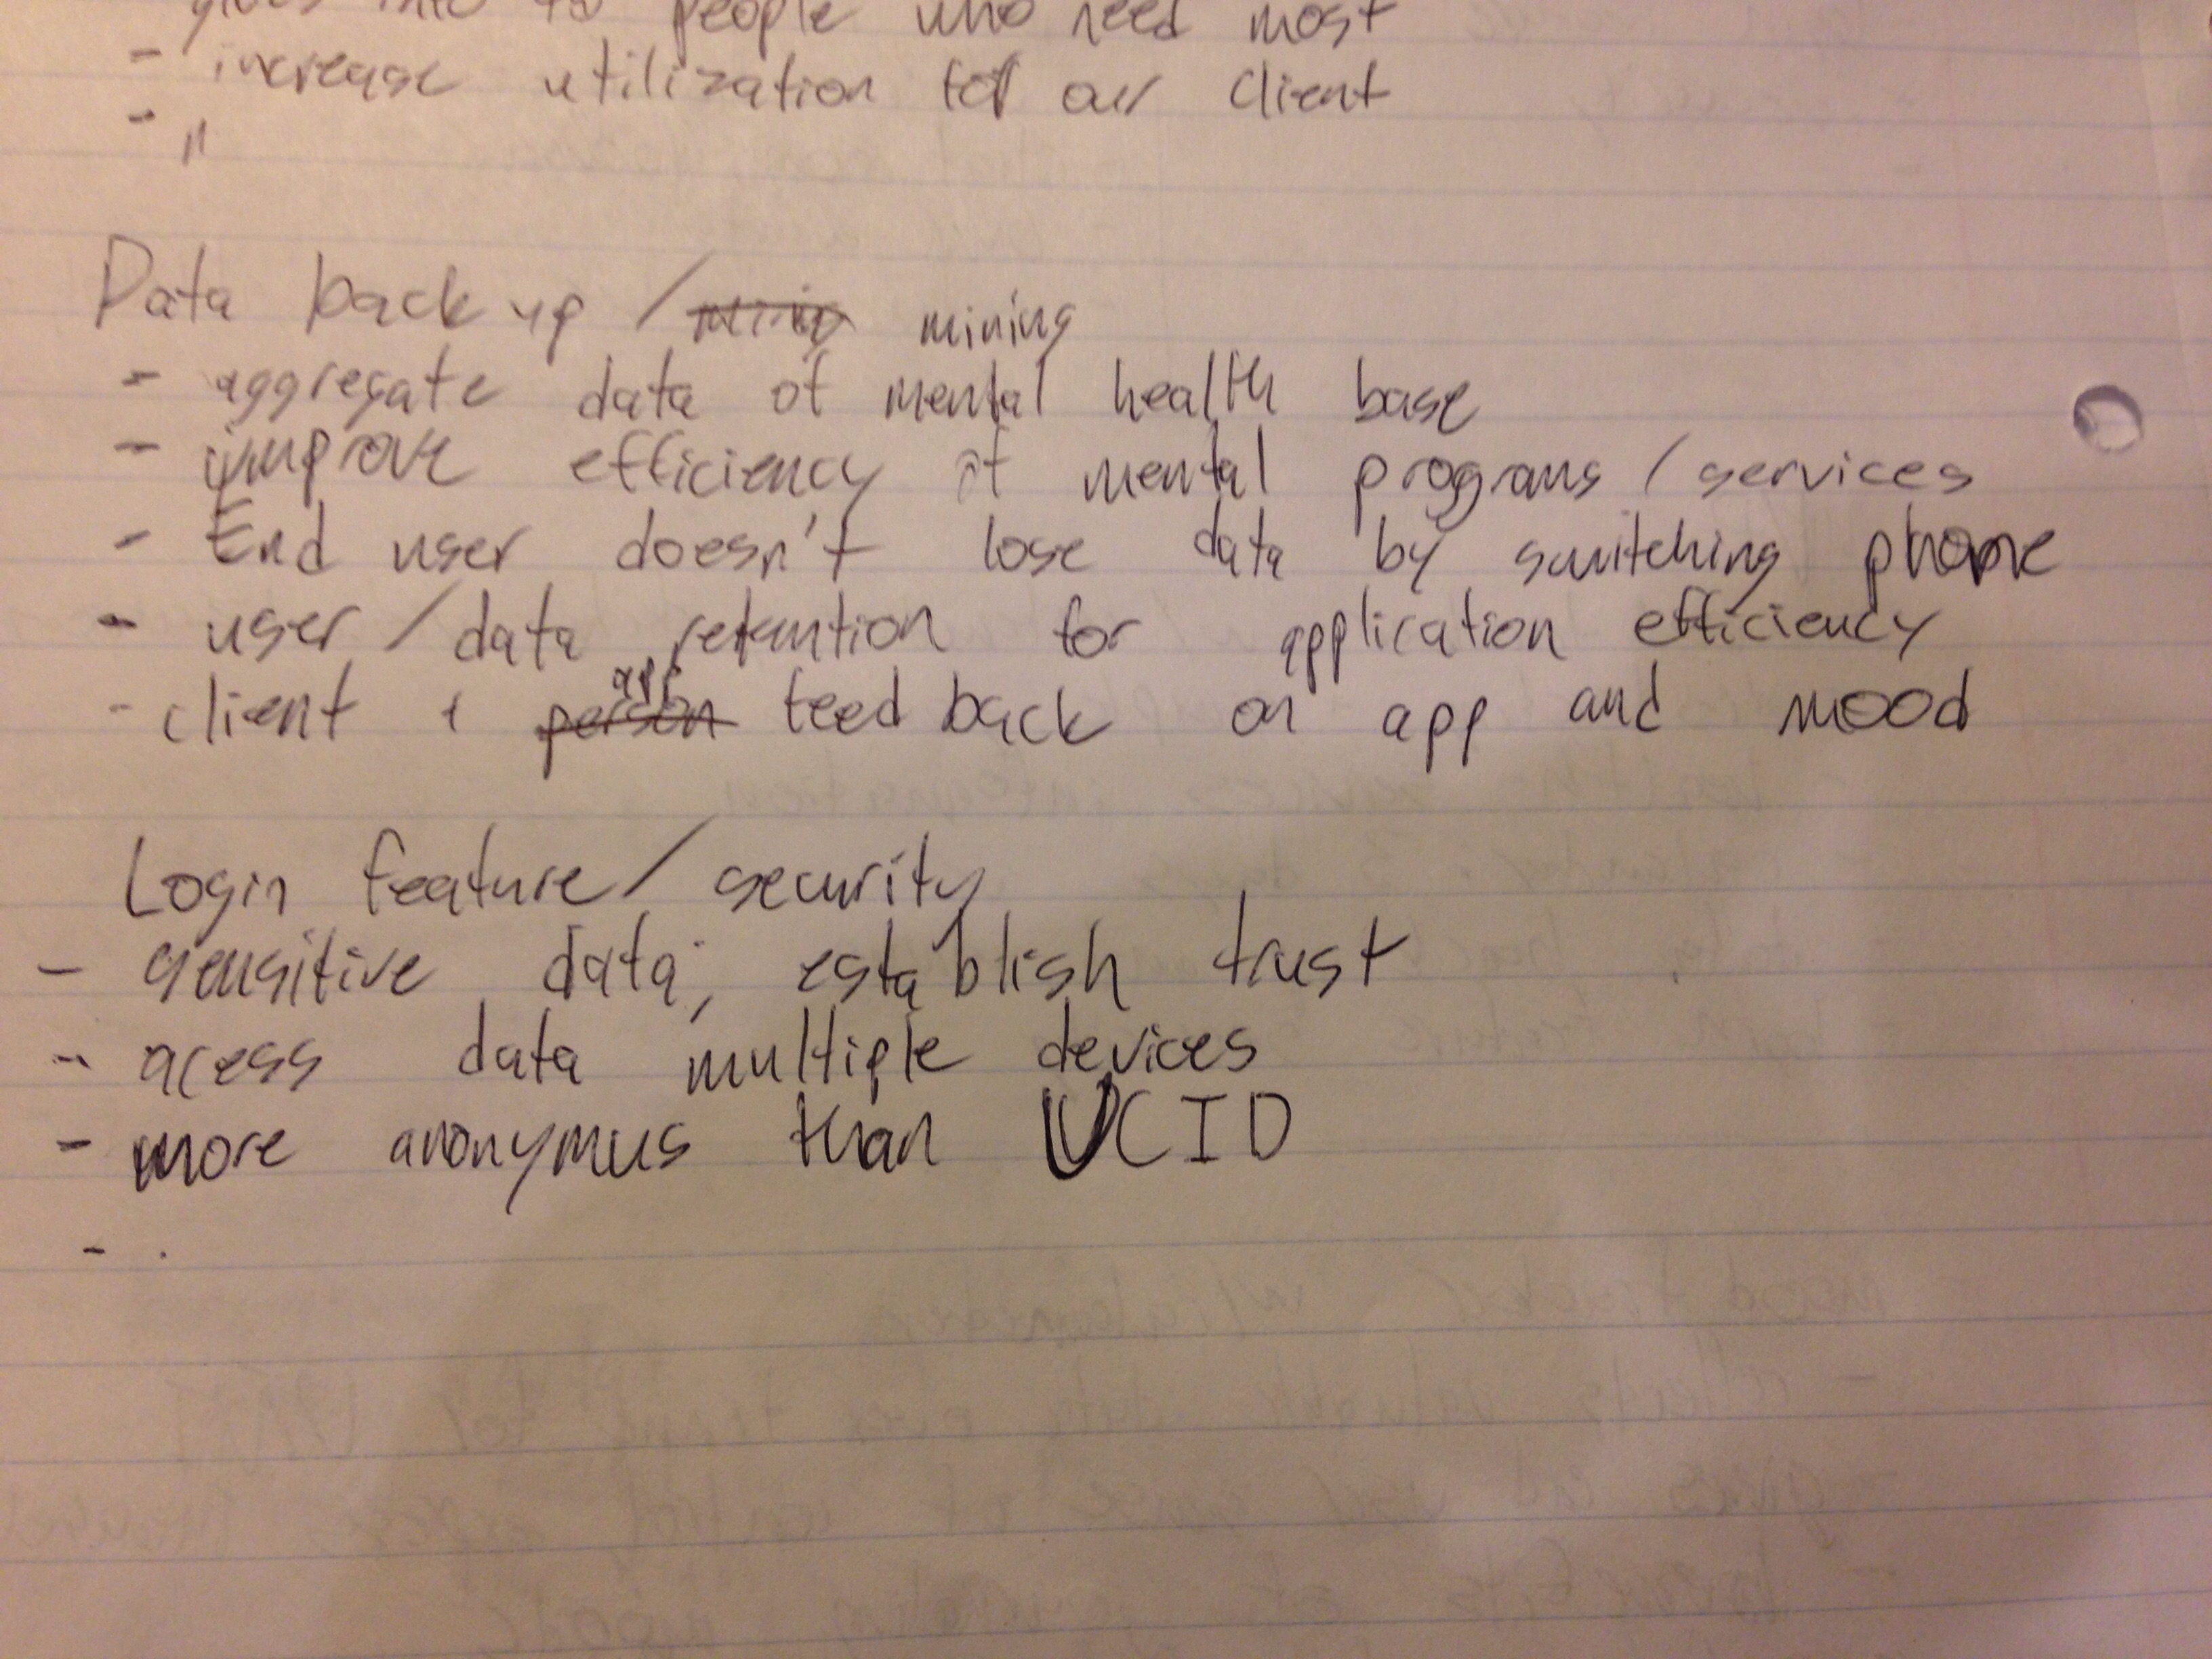 people who need most
- increase utilization for our client
- "
Data back up / mining
- aggregate data of mental health base
- improve efficiency of mental programs / services
- End user doesn't lose data by switching phone
- user / data retuntion for application efficiency
- client + feed back on app and mood
Login feature / security
- sensitive data, establish trust
- acess data multiple devices
- more anonymus than UCID
-